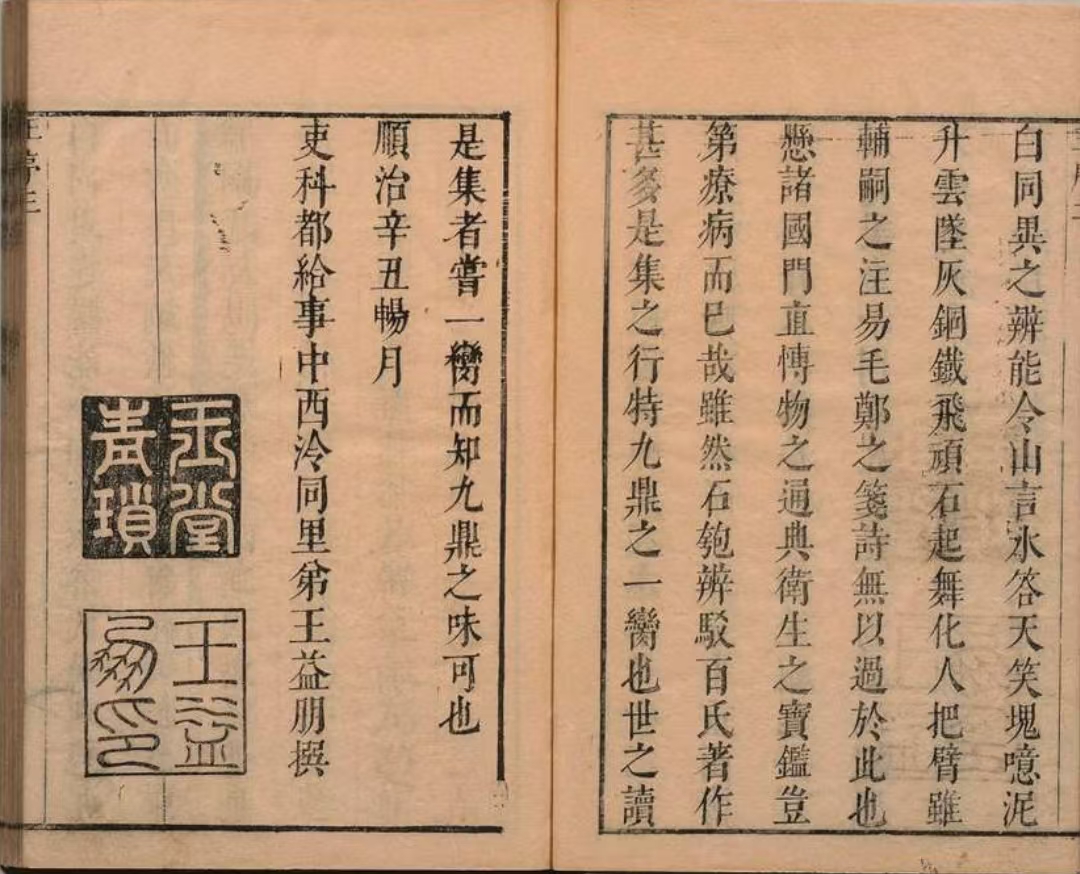 白同異之辨能令山言水答天笑塊噫泥
升雲墜灰銅鐵飛頑石起舞化人把臂雖
輔嗣之注易毛鄭之箋詩無以過於此也
懸諸國門直博物之通典衛生之寶鑑豈
第療病而已哉雖然石匏辨駁百氏著作
甚多是集之行特九鼎之一臠也世之讀
是集者嘗一臠而知九鼎之味可也
順治辛丑暢月
吏科都給事中西泠同里弟王益朋撰
玉堂
青瑣
王益
朋印